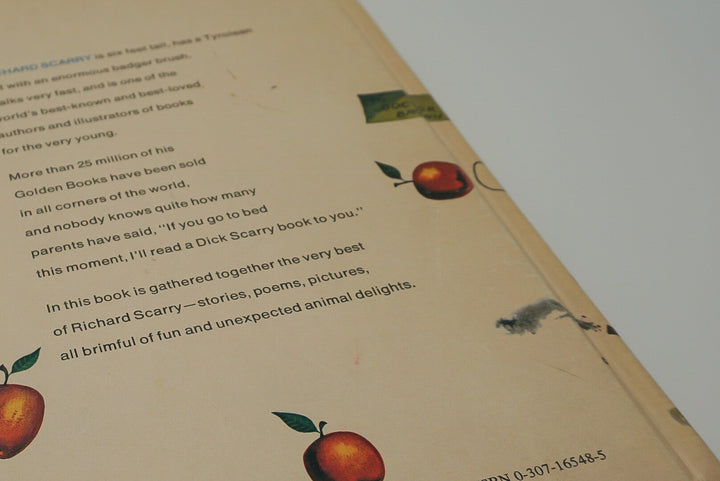 RICHARD SCARRY is six feet tall, has a Tyrolean
with an enormous badger brush,
talks very fast, and is one of the
world's best-known and best-loved
authors and illustrators of books
for the very young.
More than 25 million of his
Golden Books have been sold
in all corners of the world,
and nobody knows quite how many
parents have said, "If you go to bed
this moment, I'll read a Dick Scarry book to you."
In this book is gathered together the very best
of Richard Scarry—stories, poems, pictures,
all brimful of fun and unexpected animal delights.
ISBN 0-307-16548-5